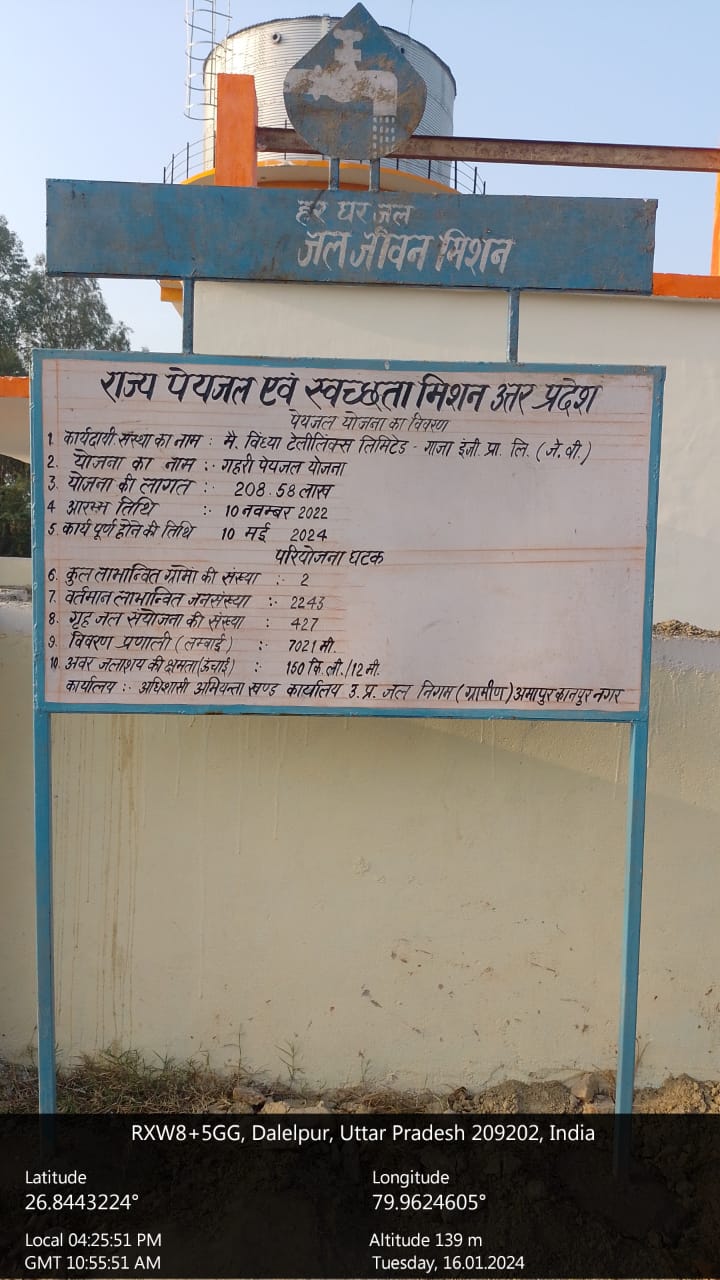 हर घर जल
जल जीवन मिशन
राज्य पेयजल एवं स्वच्छता मिशन उत्तर प्रदेश
पेयजल योजना का विवरण
1. कार्यदायी संस्था का नाम : मै. विंध्या टेलीलिंक्स लिमिटेड - गाजा इंजी. प्रा. लि. (जे. वी.)
2. योजना का नाम :- गहरी पेयजल योजना
3. योजना की लागत :- 208.58 लाख
4 आरम्भ तिथि :- 10 नवम्बर 2022
5. कार्य पूर्ण होने की तिथि 10 मई 2024
परियोजना घटक
6. कुल लाभान्वित ग्रामों की संख्या :- 2
7. वर्तमान लाभान्वित जनसंख्या :- 2243
8. गृह जल संयोजना की संख्या : 427
9. विवरण प्रणाली (लम्बाई) :- 7021 मी.
10. अवर जलाशय की क्षमता (ऊंचाई) : 150 कि.ली./12 मी.
कार्यालय :- अधिशासी अभियन्ता खण्ड कार्यालय उ. प्र. जल निगम (ग्रामीण) अमापुर कानपुर नगर
RXW8+5GG, Dalelpur, Uttar Pradesh 209202, India
Latitude Longitude
26.8443224° 79.9624605°
Local 04:25:51 PM Altitude 139 m
GMT 10:55:51 AM Tuesday, 16.01.2024